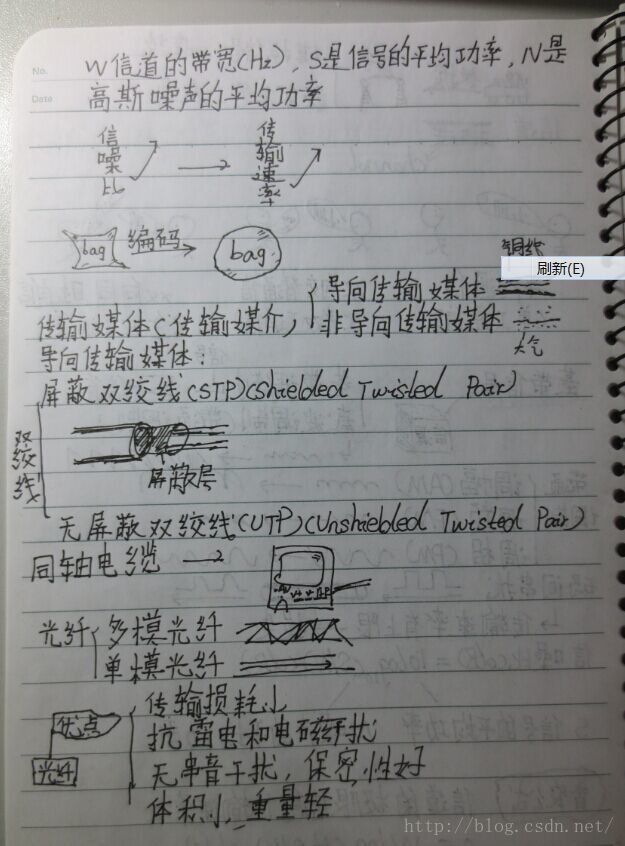 No.
Date
W信道的带宽(Hz), S是信号的平均功率, N是
高斯噪声的平均功率
信噪比
传输速率
bag 编码 bag
铜线
刷新(E)
导向传输媒体
传输媒体(传输媒介)
非导向传输媒体
大气
导向传输媒体:
屏蔽双绞线(STP)(Shielded Twisted Pair)
双绞线
屏蔽层
无屏蔽双绞线(UTP)(Unshielded Twisted Pair)
同轴电缆
光纤 多模光纤
单模光纤
传输损耗小
优点
抗雷电和电磁干扰
光纤
无串音干扰, 保密性好
体积小, 重量轻
http://blog.csdn.net/